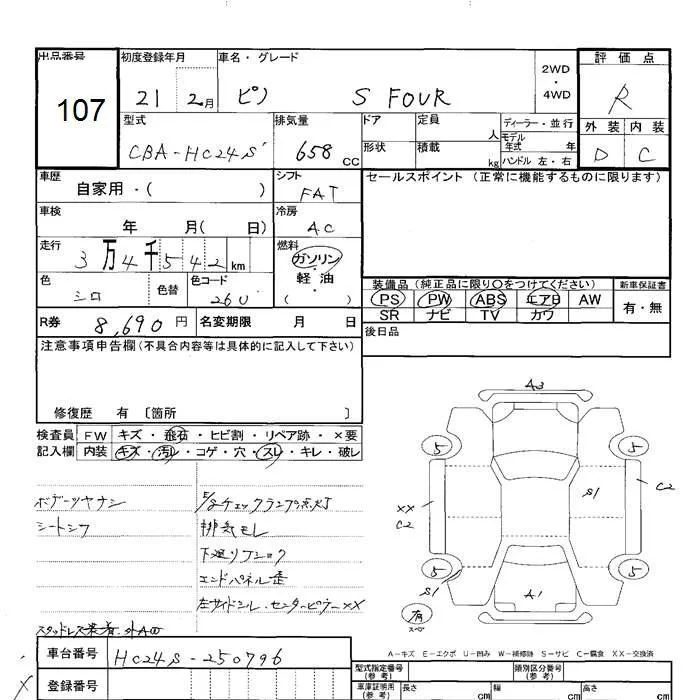 出品番号 初度登録年月 車名・グレード 2WD・4WD 評価点
107 21 2月 ピノ S FOUR R
型式 排気量 ドア 定員 人 ディーラー・並行 外装 内装
CBA-HC24S 658 CC 形状 積載 kg モデル年式 年 ハンドル 左・右 D C
車歴 シフト セールスポイント (正常に機能するものに限ります)
自家用・( ) FAT
車検 冷房
年 月( 日) AC
走行 燃料
3万4千542km ガソリン
軽油
( )
色 色替 色コード 装備品 (純正品に限り○をつけてください) 新車保証書
シロ 26U PS PW ABS エアB AW 有・無
SR ナビ TV カワ
R券 8,690円 名変期限 月 日 後日品
注意事項申告欄(不具合内容等は具体的に記入して下さい)
修復歴 有 〔箇所 〕
検査員 FW キズ・飛石・ヒビ割・リペア跡・×要
記入欄 内装 キズ・汚レ・コゲ・穴・スレ・キレ・破レ
ボデーツヤナシ E/gチェックランプ点灯
シートシワ 排気モレ
下廻リフショク
エンドパネル歪
左サイドシル・センターピラーXX
スタッドレス装着・外AW
A3
5 5
S1 C2
XX
C2
5 5
S1 A1
有
スペア
A-キズ E-エクボ U-凹み W-補修跡 S-サビ C-腐食 XX-交換済
車台番号 HC24S-250796
登録番号
型式指定番号(参考) 類別区分番号(参考)
車庫証明用(参考) 長さ cm 幅 cm 高さ cm